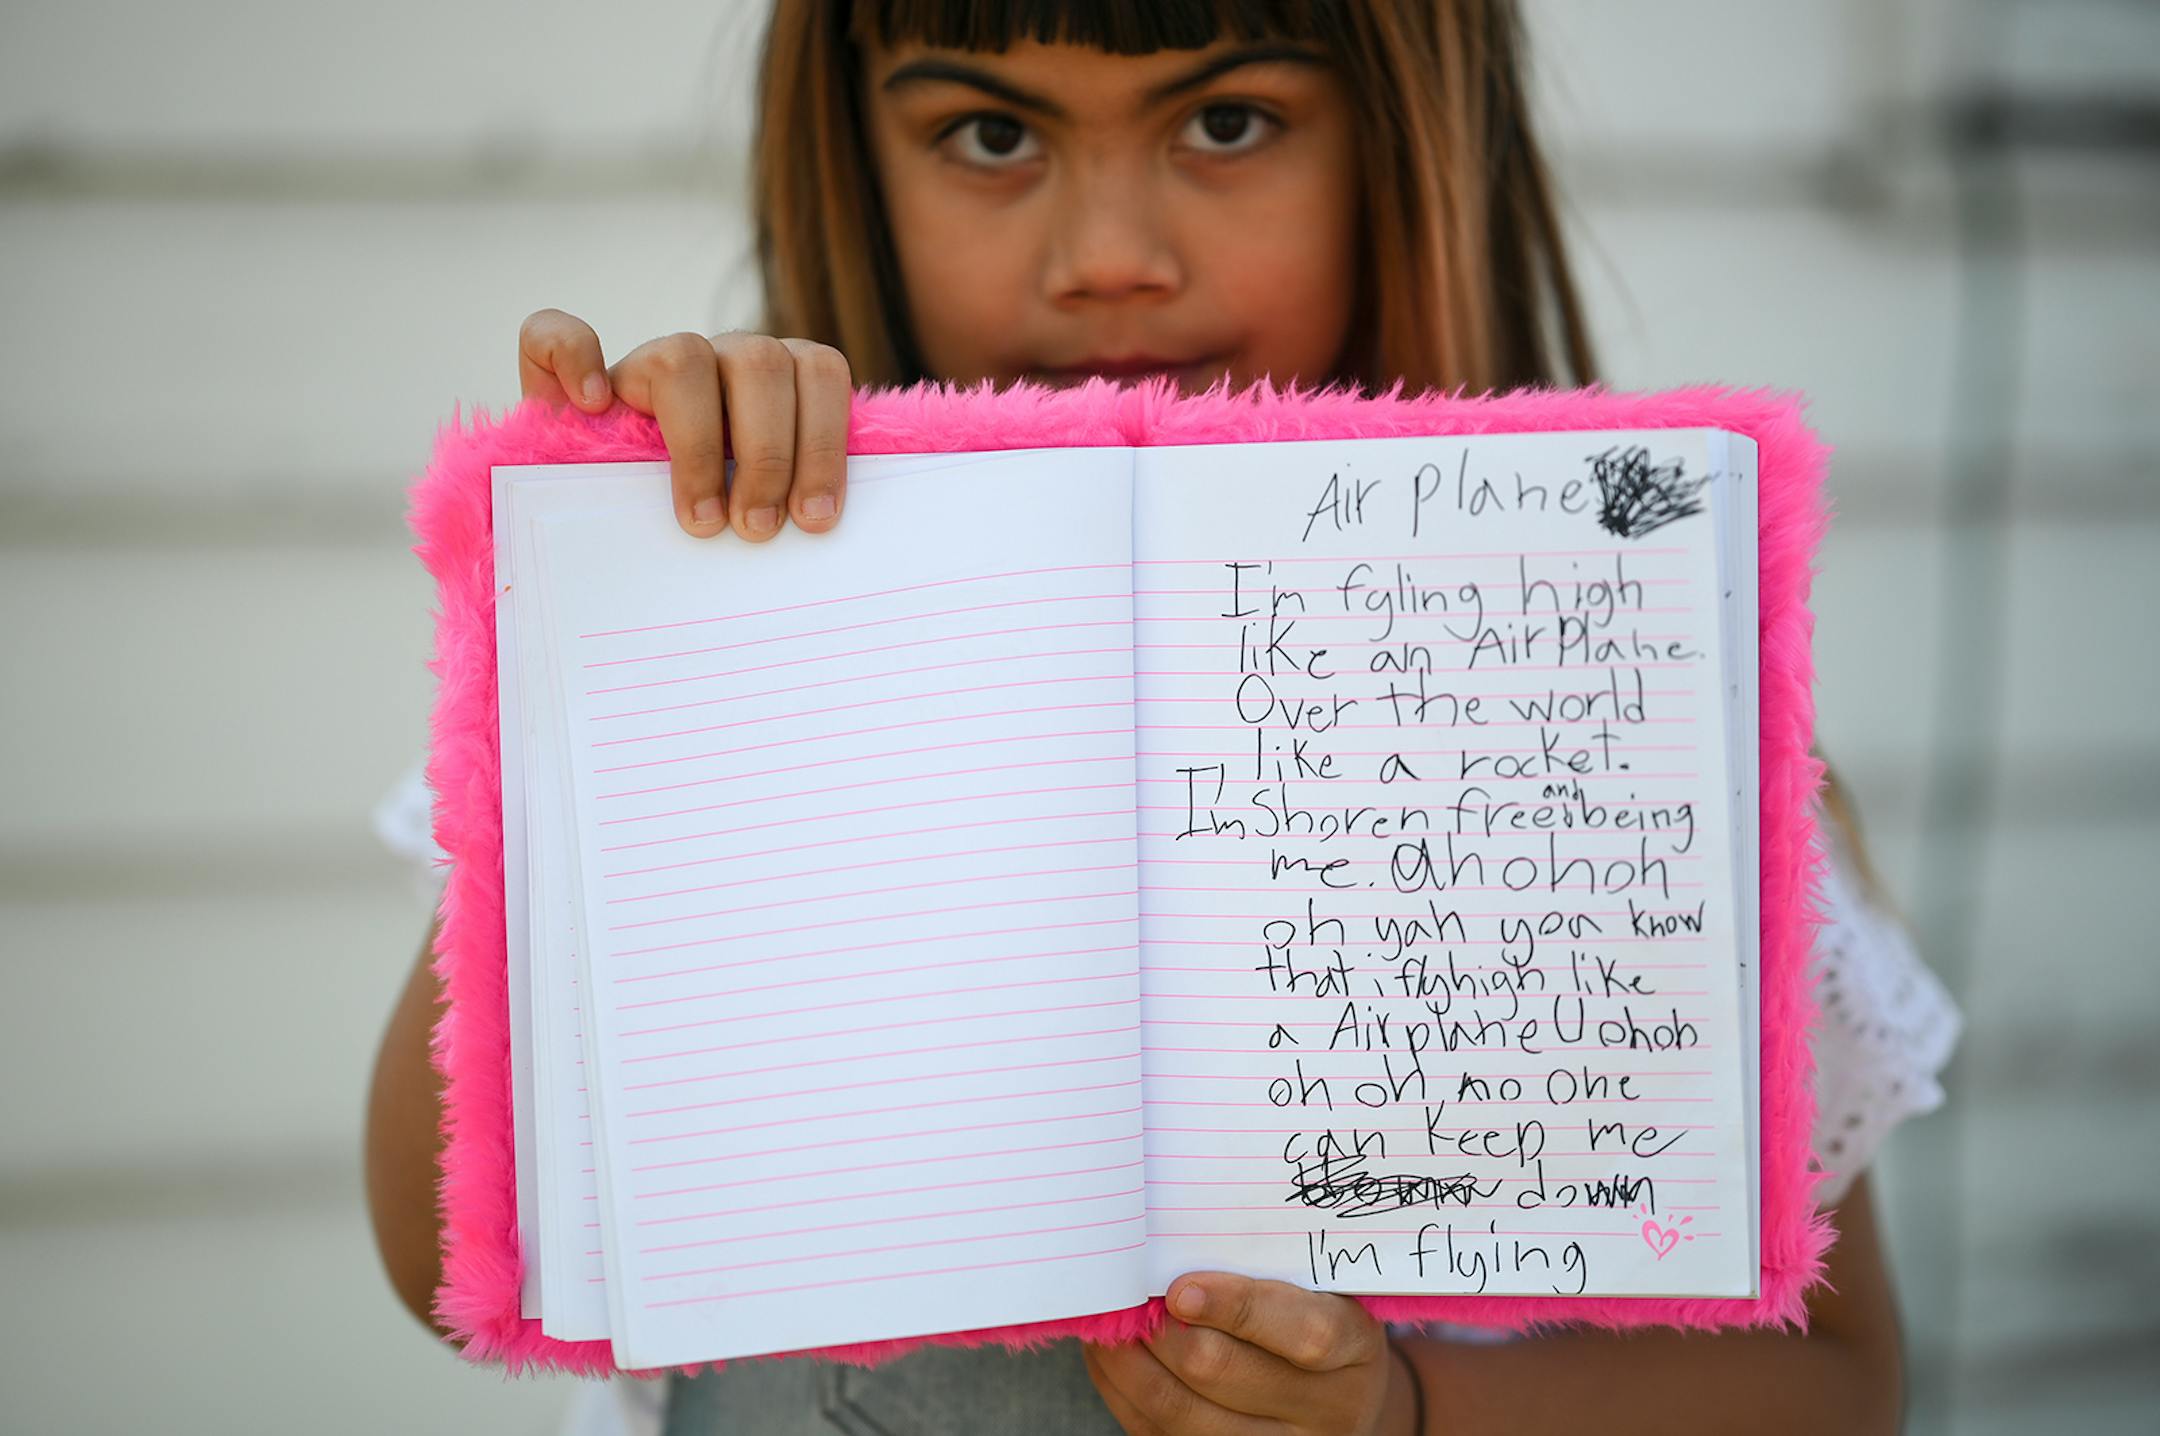 Air plane
I'm fyling high
like an Air Plane.
Over the world
like a rocket.
I'm Shoren free and being
me. ah oh oh
oh yah you know
that i fly high like
a Air plane U ohoh
oh oh no one
can keep me
down
I'm flying